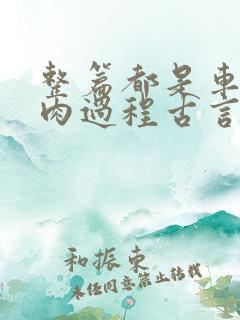 整篇都是車
肉過程古言
和振東
未经同意禁止转载